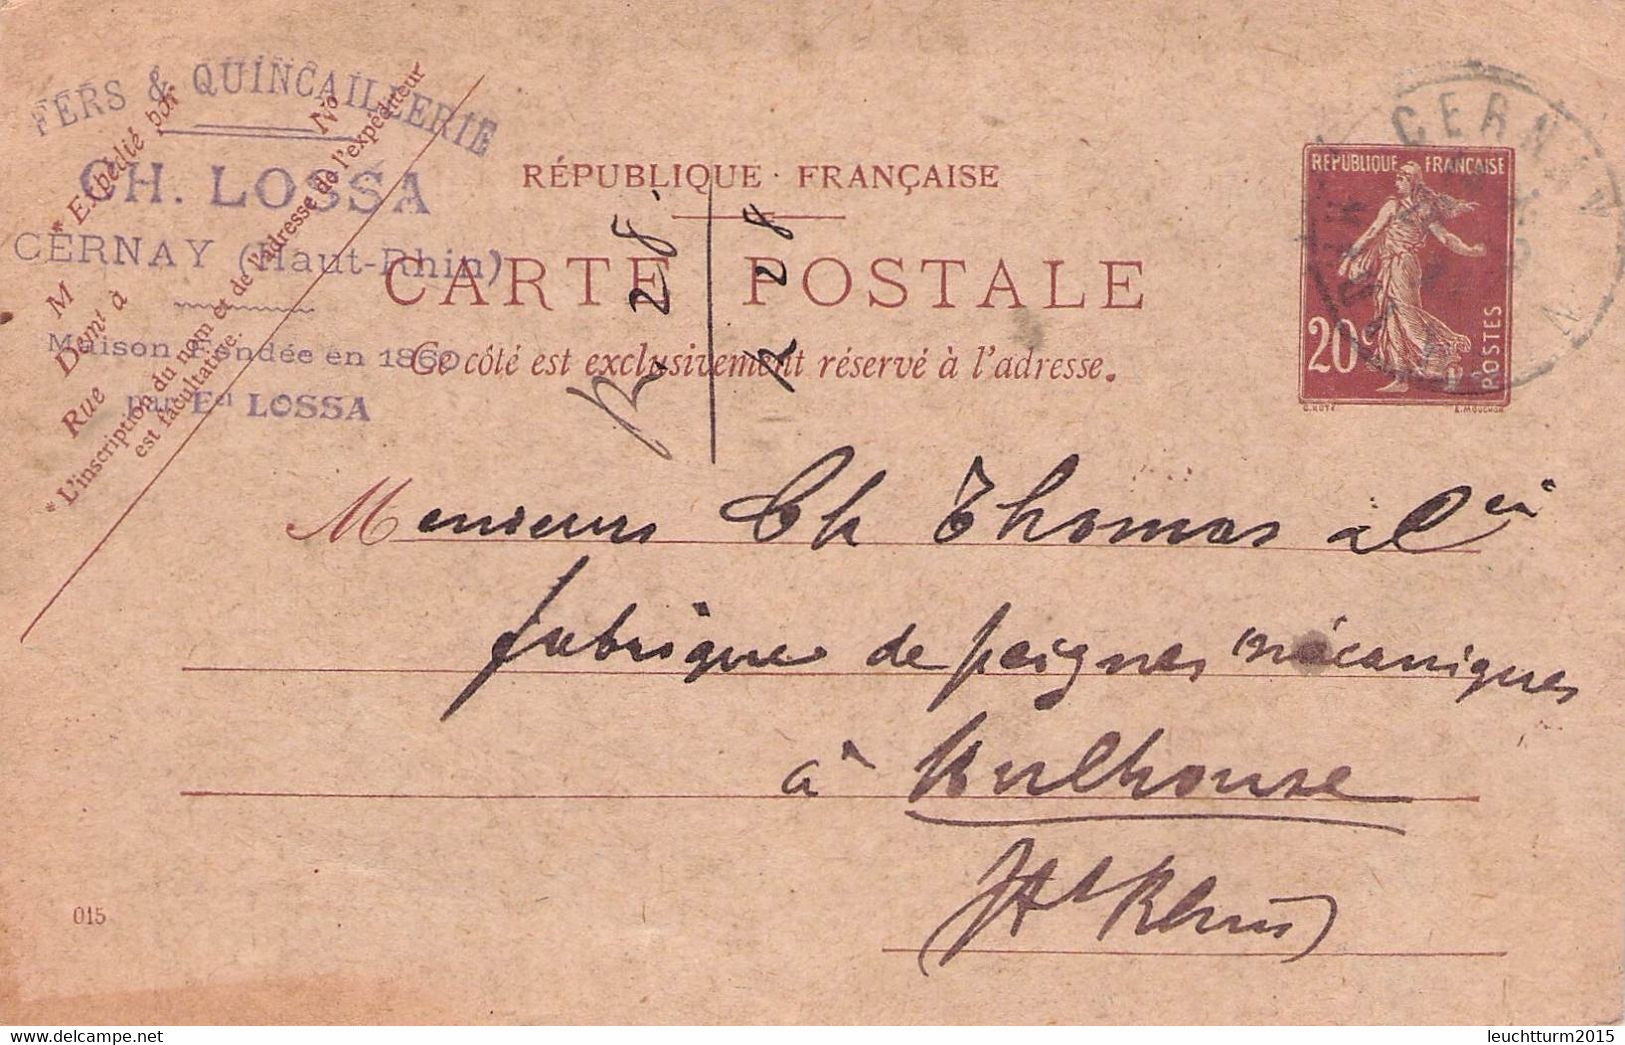 FERS & QUINCAILLERIE
CH. LOSSA
CERNAY (Haut-Rhin)
Maison fondée en 1860
par Ed LOSSA
* Expédié par
M
Demt à
Rue
No
* L'inscription du nom et de l'adresse de l'expéditeur
est facultative.
RÉPUBLIQUE FRANÇAISE
CARTE POSTALE
Ce côté est exclusivement réservé à l'adresse.
R. 28.
R 28
CERNAY
RÉPUBLIQUE FRANÇAISE
20c
POSTES
E. MOUCHON
Messieurs Ch Thomas & Cie
fabriques de peignes mécaniques
à Mulhouse
(Ht Rhin)
015
leuchtturm2015